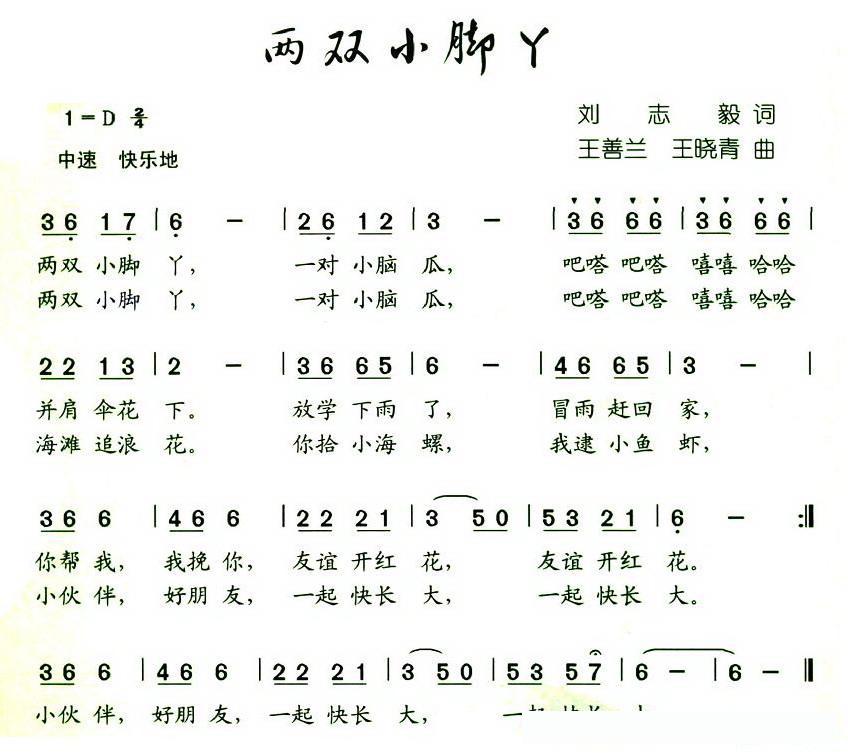 两双小脚丫
1=D 2/4
刘志毅 词
中速 快乐地
王善兰 王晓青 曲
3 6 1 7 | 6 - | 2 6 1 2 | 3 - | 3 6 6 6 | 3 6 6 6 |
两双 小脚 丫， 一对 小脑 瓜， 吧嗒 吧嗒 嘻嘻 哈哈
两双 小脚 丫， 一对 小脑 瓜， 吧嗒 吧嗒 嘻嘻 哈哈
2 2 1 3 | 2 - | 3 6 6 5 | 6 - | 4 6 6 5 | 3 - |
并肩 伞花 下。 放学 下雨 了， 冒雨 赶回 家，
海滩 追浪 花。 你拾 小海 螺， 我逮 小鱼 虾，
3 6 6 | 4 6 6 | 2 2 2 1 | 3 5 0 | 5 3 2 1 | 6 - :||
你帮 我， 我挽 你， 友谊 开红 花， 友谊 开红 花。
小伙 伴， 好朋 友， 一起 快长 大， 一起 快长 大。
3 6 6 | 4 6 6 | 2 2 2 1 | 3 5 0 | 5 3 5 7 | 6 - | 6 - ||
小伙 伴， 好朋 友， 一起 快长 大， 一起